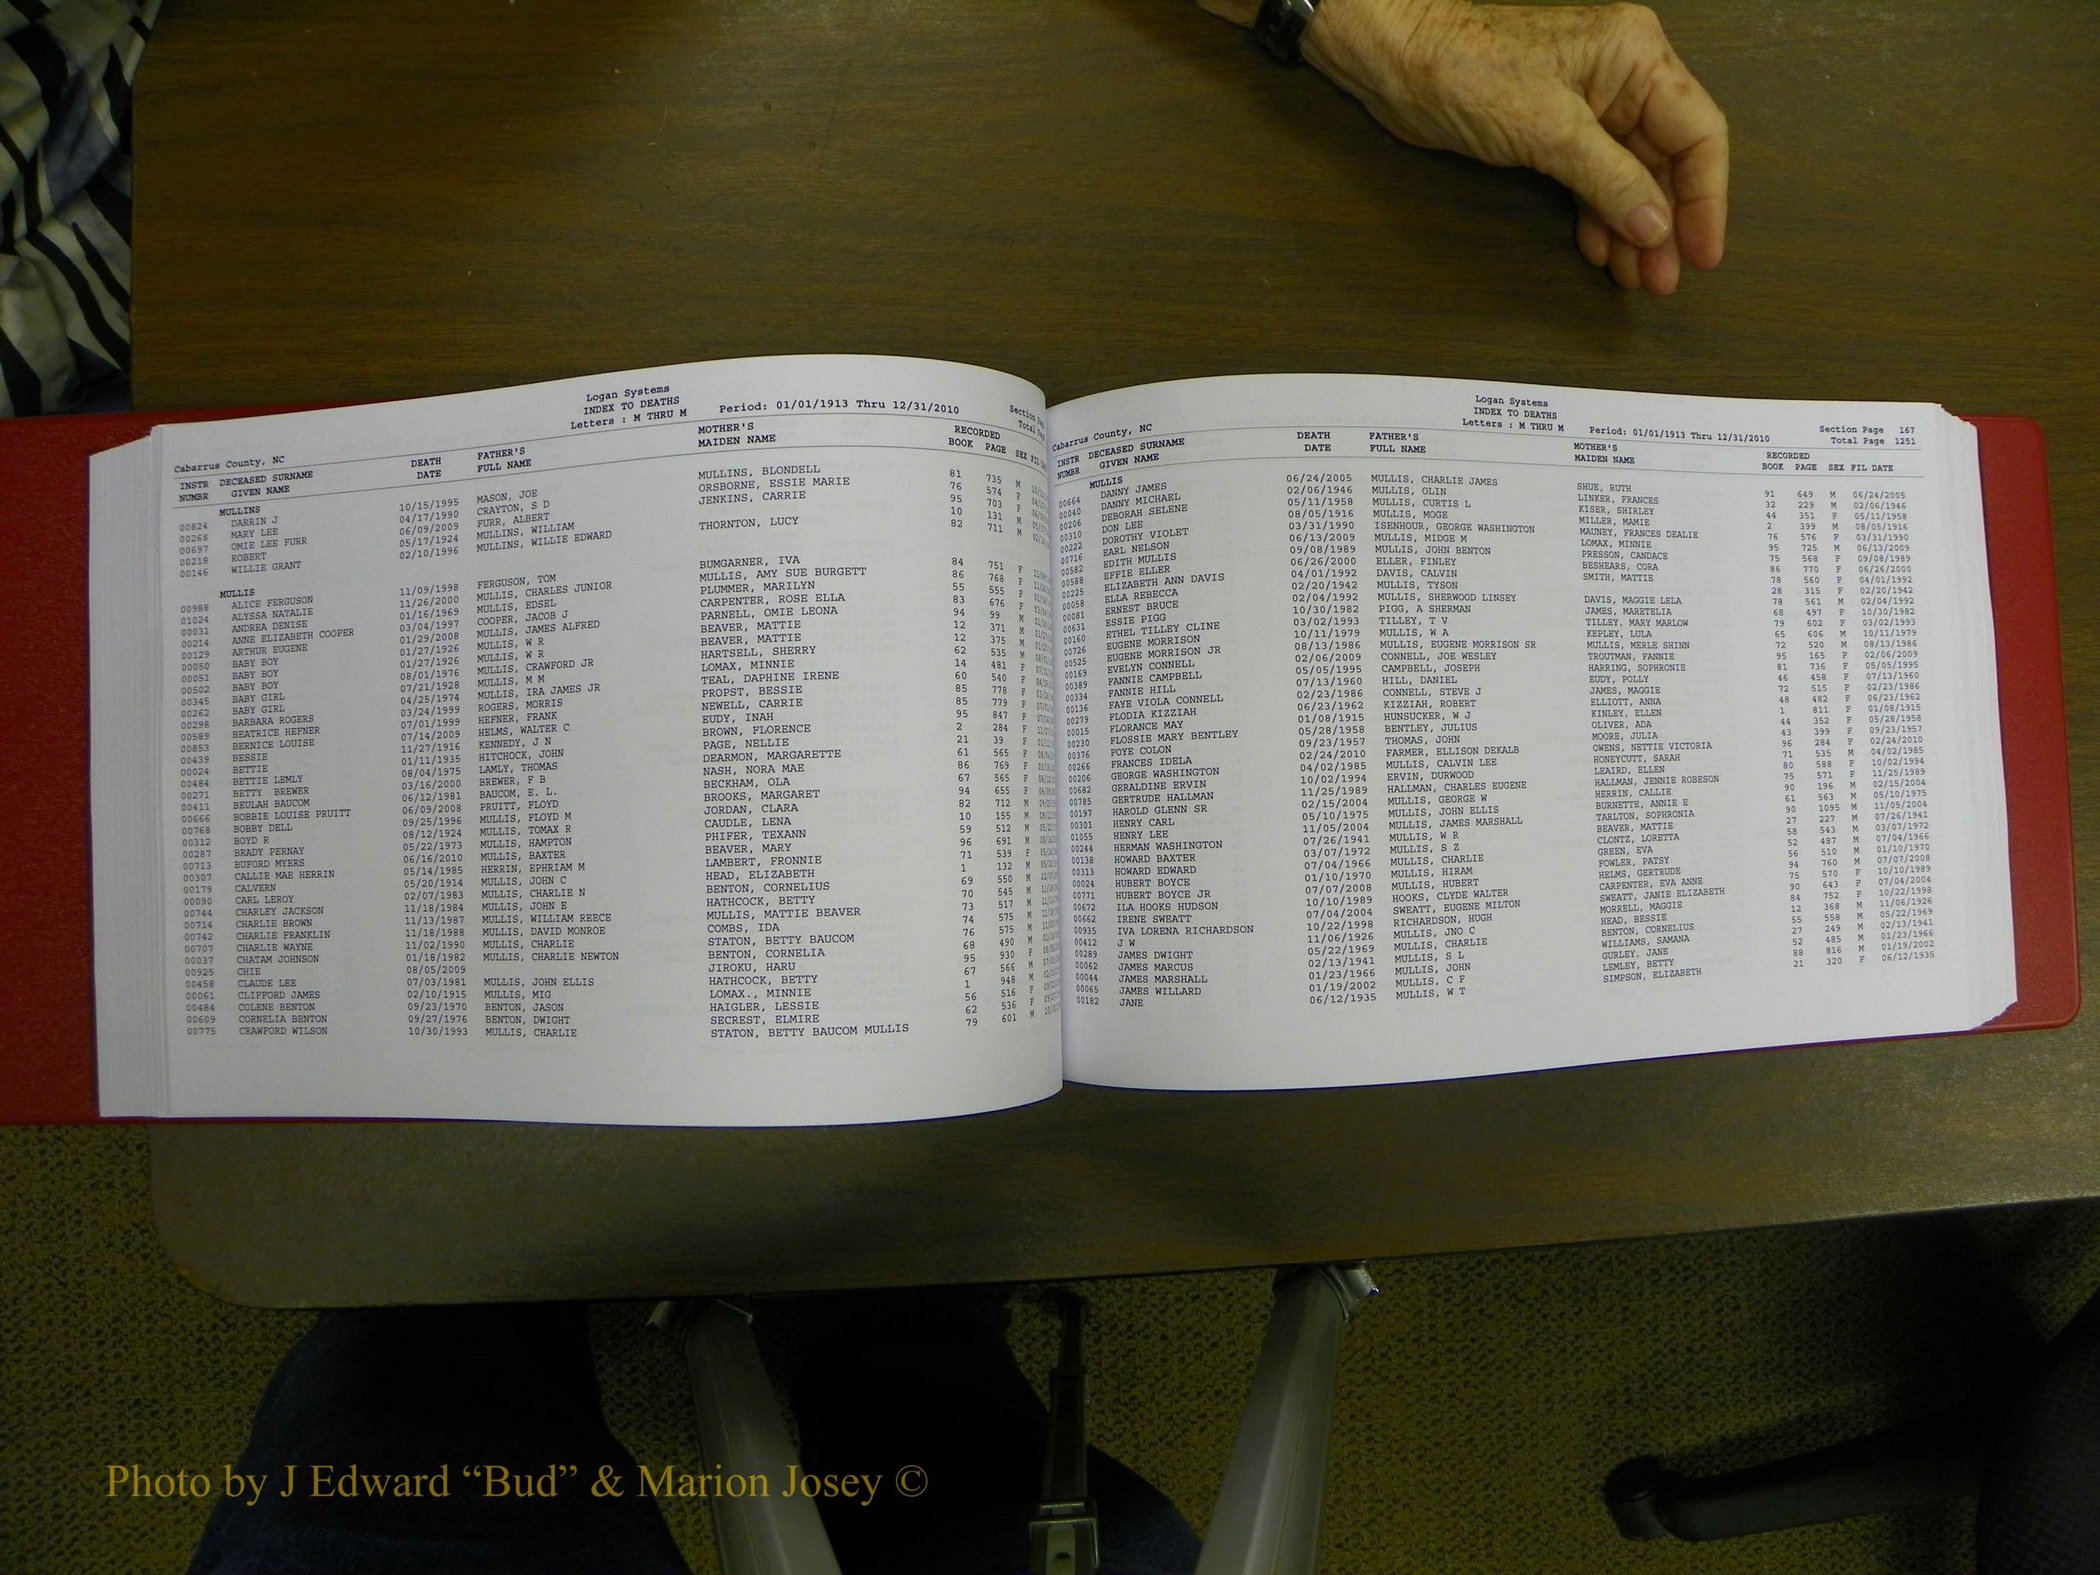 Logan Systems
INDEX TO DEATHS
Letters : M THRU M Period: 01/01/1913 Thru 12/31/2010
Cabarrus County, NC
INSTR DECEASED SURNAME DEATH FATHER'S MOTHER'S RECORDED
NUMBR GIVEN NAME DATE FULL NAME MAIDEN NAME BOOK PAGE SEX
MULLINS
00824 DARRIN J 10/15/1995 MASON, JOE MULLINS, BLONDELL 81 735 M
00268 MARY LEE 04/17/1990 CRAYTON, S D ORSBORNE, ESSIE MARIE 76 574 F
00697 OMIE LEE FURR 06/09/2009 FURR, ALBERT JENKINS, CARRIE 95 703 F
00218 ROBERT 05/17/1924 MULLINS, WILLIAM 10 131 M
00146 WILLIE GRANT 02/10/1996 MULLINS, WILLIE EDWARD THORNTON, LUCY 82 711 M
MULLIS
00988 ALICE FERGUSON 11/09/1998 FERGUSON, TOM BUMGARNER, IVA 84 751 F
01024 ALYSSA NATALIE 11/26/2000 MULLIS, CHARLES JUNIOR MULLIS, AMY SUE BURGETT 86 768 F
00031 ANDREA DENISE 01/16/1969 MULLIS, EDSEL PLUMMER, MARILYN 55 555 F
00214 ANNE ELIZABETH COOPER 03/04/1997 COOPER, JACOB J CARPENTER, ROSE ELLA 83 676 F
00129 ARTHUR EUGENE 01/29/2008 MULLIS, JAMES ALFRED PARNELL, OMIE LEONA 94 99 M
00050 BABY BOY 01/27/1926 MULLIS, W R BEAVER, MATTIE 12 371 M
00051 BABY BOY 01/27/1926 MULLIS, W R BEAVER, MATTIE 12 375 M
00502 BABY BOY 08/01/1976 MULLIS, CRAWFORD JR HARTSELL, SHERRY 62 535 M
00345 BABY GIRL 07/21/1928 MULLIS, M M LOMAX, MINNIE 14 481 F
00262 BABY GIRL 04/25/1974 MULLIS, IRA JAMES JR TEAL, DAPHINE IRENE 60 540 F
00298 BARBARA ROGERS 03/24/1999 ROGERS, MORRIS PROPST, BESSIE 85 778 F
00589 BEATRICE HEFNER 07/01/1999 HEFNER, FRANK NEWELL, CARRIE 85 779 F
00853 BERNICE LOUISE 07/14/2009 HELMS, WALTER C EUDY, INAH 95 847 F
00439 BESSIE 11/27/1916 KENNEDY, J N BROWN, FLORENCE 2 284 F
00024 BETTIE 01/11/1935 HITCHOCK, JOHN PAGE, NELLIE 21 39 F
00484 BETTIE LEMLY 08/04/1975 LAMLY, THOMAS DEARMON, MARGARETTE 61 565 F
00271 BETTY BREWER 03/16/2000 BREWER, F B NASH, NORA MAE 86 769 F
00411 BEULAH BAUCOM 06/12/1981 BAUCOM, E. L. BECKHAM, OLA 67 565 F
00666 BOBBIE LOUISE PRUITT 06/09/2008 PRUITT, FLOYD BROOKS, MARGARET 94 655 F
00768 BOBBY DELL 09/25/1996 MULLIS, FLOYD M JORDAN, CLARA 82 712 M
00312 BOYD R 08/12/1924 MULLIS, TOMAX R CAUDLE, LENA 10 155 M
00287 BRADY PERNAY 05/22/1973 MULLIS, HAMPTON PHIFER, TEXANN 59 512 M
00713 BUFORD MYERS 06/16/2010 MULLIS, BAXTER BEAVER, MARY 96 691 M
00307 CALLIE MAE HERRIN 05/14/1985 HERRIN, EPHRIAM M LAMBERT, FRONNIE 71 539 F
00179 CALVERN 05/20/1914 MULLIS, JOHN C HEAD, ELIZABETH 1 132 M
00090 CARL LEROY 02/07/1983 MULLIS, CHARLIE N BENTON, CORNELIUS 69 550 M
00744 CHARLEY JACKSON 11/18/1984 MULLIS, JOHN E HATHCOCK, BETTY 70 545 M
00714 CHARLIE BROWN 11/13/1987 MULLIS, WILLIAM REECE MULLIS, MATTIE BEAVER 73 517 M
00742 CHARLIE FRANKLIN 11/18/1988 MULLIS, DAVID MONROE COMBS, IDA 74 575 M
00707 CHARLIE WAYNE 11/02/1990 MULLIS, CHARLIE STATON, BETTY BAUCOM 76 575 M
00037 CHATAM JOHNSON 01/18/1982 MULLIS, CHARLIE NEWTON BENTON, CORNELIA 68 490 M
00925 CHIE 08/05/2009 JIROKU, HARU 95 930 F
00458 CLAUDE LEE 07/03/1981 MULLIS, JOHN ELLIS HATHCOCK, BETTY 67 566 M
00061 CLIFFORD JAMES 02/10/1915 MULLIS, MIG LOMAX., MINNIE 1 948 M
00484 COLENE BENTON 09/23/1970 BENTON, JASON HAIGLER, LESSIE 56 516 F
00609 CORNELIA BENTON 09/27/1976 BENTON, DWIGHT SECREST, ELMIRE 62 536 F
00775 CRAWFORD WILSON 10/30/1993 MULLIS, CHARLIE STATON, BETTY BAUCOM MULLIS 79 601 M
Logan Systems
INDEX TO DEATHS
Letters : M THRU M Period: 01/01/1913 Thru 12/31/2010 Section Page 167
Cabarrus County, NC Total Page 1251
INSTR DECEASED SURNAME DEATH FATHER'S MOTHER'S RECORDED
NUMBR GIVEN NAME DATE FULL NAME MAIDEN NAME BOOK PAGE SEX FIL DATE
MULLIS
00664 DANNY JAMES 06/24/2005 MULLIS, CHARLIE JAMES SHUE, RUTH 91 649 M 06/24/2005
00040 DANNY MICHAEL 02/06/1946 MULLIS, OLIN LINKER, FRANCES 32 229 M 02/06/1946
00206 DEBORAH SELENE 05/11/1958 MULLIS, CURTIS L KISER, SHIRLEY 44 351 F 05/11/1958
00310 DON LEE 08/05/1916 MULLIS, MOGE MILLER, MAMIE 2 399 M 08/05/1916
00222 DOROTHY VIOLET 03/31/1990 ISENHOUR, GEORGE WASHINGTON MAUNEY, FRANCES DEALIE 76 576 F 03/31/1990
00716 EARL NELSON 06/13/2009 MULLIS, MIDGE M LOMAX, MINNIE 95 725 M 06/13/2009
00582 EDITH MULLIS 09/08/1989 MULLIS, JOHN BENTON PRESSON, CANDACE 75 568 F 09/08/1989
00588 EFFIE ELLER 06/26/2000 ELLER, FINLEY BESHEARS, CORA 86 770 F 06/26/2000
00225 ELIZABETH ANN DAVIS 04/01/1992 DAVIS, CALVIN SMITH, MATTIE 78 560 F 04/01/1992
00058 ELLA REBECCA 02/20/1942 MULLIS, TYSON 28 315 F 02/20/1942
00081 ERNEST BRUCE 02/04/1992 MULLIS, SHERWOOD LINSEY DAVIS, MAGGIE LELA 78 561 M 02/04/1992
00631 ESSIE PIGG 10/30/1982 PIGG, A SHERMAN JAMES, MARETELIA 68 497 F 10/30/1982
00160 ETHEL TILLEY CLINE 03/02/1993 TILLEY, T V TILLEY, MARY MARLOW 79 602 F 03/02/1993
00726 EUGENE MORRISON 10/11/1979 MULLIS, W A KEPLEY, LULA 65 606 M 10/11/1979
00525 EUGENE MORRISON JR 08/13/1986 MULLIS, EUGENE MORRISON SR MULLIS, MERLE SHINN 72 520 M 08/13/1986
00169 EVELYN CONNELL 02/06/2009 CONNELL, JOE WESLEY TROUTMAN, FANNIE 95 165 F 02/06/2009
00389 FANNIE CAMPBELL 05/05/1995 CAMPBELL, JOSEPH HARRING, SOPHRONIE 81 736 F 05/05/1995
00334 FANNIE HILL 07/13/1960 HILL, DANIEL EUDY, POLLY 46 458 F 07/13/1960
00136 FAYE VIOLA CONNELL 02/23/1986 CONNELL, STEVE J JAMES, MAGGIE 72 515 F 02/23/1986
00279 FLODIA KIZZIAH 06/23/1962 KIZZIAH, ROBERT ELLIOTT, ANNA 48 482 F 06/23/1962
00015 FLORANCE MAY 01/08/1915 HUNSUCKER, W J KINLEY, ELLEN 1 811 F 01/08/1915
00230 FLOSSIE MARY BENTLEY 05/28/1958 BENTLEY, JULIUS OLIVER, ADA 44 352 F 05/28/1958
00376 FOYE COLON 09/23/1957 THOMAS, JOHN MOORE, JULIA 43 399 F 09/23/1957
00266 FRANCES IDELA 02/24/2010 FARMER, ELLISON DEKALB OWENS, NETTIE VICTORIA 96 284 F 02/24/2010
00206 GEORGE WASHINGTON 04/02/1985 MULLIS, CALVIN LEE HONEYCUTT, SARAH 71 535 M 04/02/1985
00682 GERALDINE ERVIN 10/02/1994 ERVIN, DURWOOD LEAIRD, ELLEN 80 588 F 10/02/1994
00785 GERTRUDE HALLMAN 11/25/1989 HALLMAN, CHARLES EUGENE HALLMAN, JENNIE ROBESON 75 571 F 11/25/1989
00197 HAROLD GLENN SR 02/15/2004 MULLIS, GEORGE W HERRIN, CALLIE 90 196 M 02/15/2004
00301 HENRY CARL 05/10/1975 MULLIS, JOHN ELLIS BURNETTE, ANNIE E 61 563 M 05/10/1975
01055 HENRY LEE 11/05/2004 MULLIS, JAMES MARSHALL TARLTON, SOPHRONIA 90 1095 M 11/05/2004
00244 HERMAN WASHINGTON 07/26/1941 MULLIS, W R BEAVER, MATTIE 27 227 M 07/26/1941
00138 HOWARD BAXTER 03/07/1972 MULLIS, S Z CLONTZ, LORETTA 58 543 M 03/07/1972
00313 HOWARD EDWARD 07/04/1966 MULLIS, CHARLIE GREEN, EVA 52 487 M 07/04/1966
00024 HUBERT BOYCE 01/10/1970 MULLIS, HIRAM FOWLER, PATSY 56 510 M 01/10/1970
00771 HUBERT BOYCE JR 07/07/2008 MULLIS, HUBERT HELMS, GERTRUDE 94 760 M 07/07/2008
00672 ILA HOOKS HUDSON 10/10/1989 HOOKS, CLYDE WALTER CARPENTER, EVA ANNE 75 570 F 10/10/1989
00662 IRENE SWEATT 07/04/2004 SWEATT, EUGENE MILTON SWEATT, JANIE ELIZABETH 90 643 F 07/04/2004
00935 IVA LORENA RICHARDSON 10/22/1998 RICHARDSON, HUGH MORRELL, MAGGIE 84 752 F 10/22/1998
00412 J W 11/06/1926 MULLIS, JNO C HEAD, BESSIE 12 368 M 11/06/1926
00289 JAMES DWIGHT 05/22/1969 MULLIS, CHARLIE BENTON, CORNELIUS 55 558 M 05/22/1969
00062 JAMES MARCUS 02/13/1941 MULLIS, S L WILLIAMS, SAMANA 27 249 M 02/13/1941
00044 JAMES MARSHALL 01/23/1966 MULLIS, JOHN GURLEY, JANE 52 485 M 01/23/1966
00065 JAMES WILLARD 01/19/2002 MULLIS, C F LEMLEY, BETTY 88 816 M 01/19/2002
00182 JANE 06/12/1935 MULLIS, W T SIMPSON, ELIZABETH 21 320 F 06/12/1935
Photo by J Edward “Bud” & Marion Josey ©